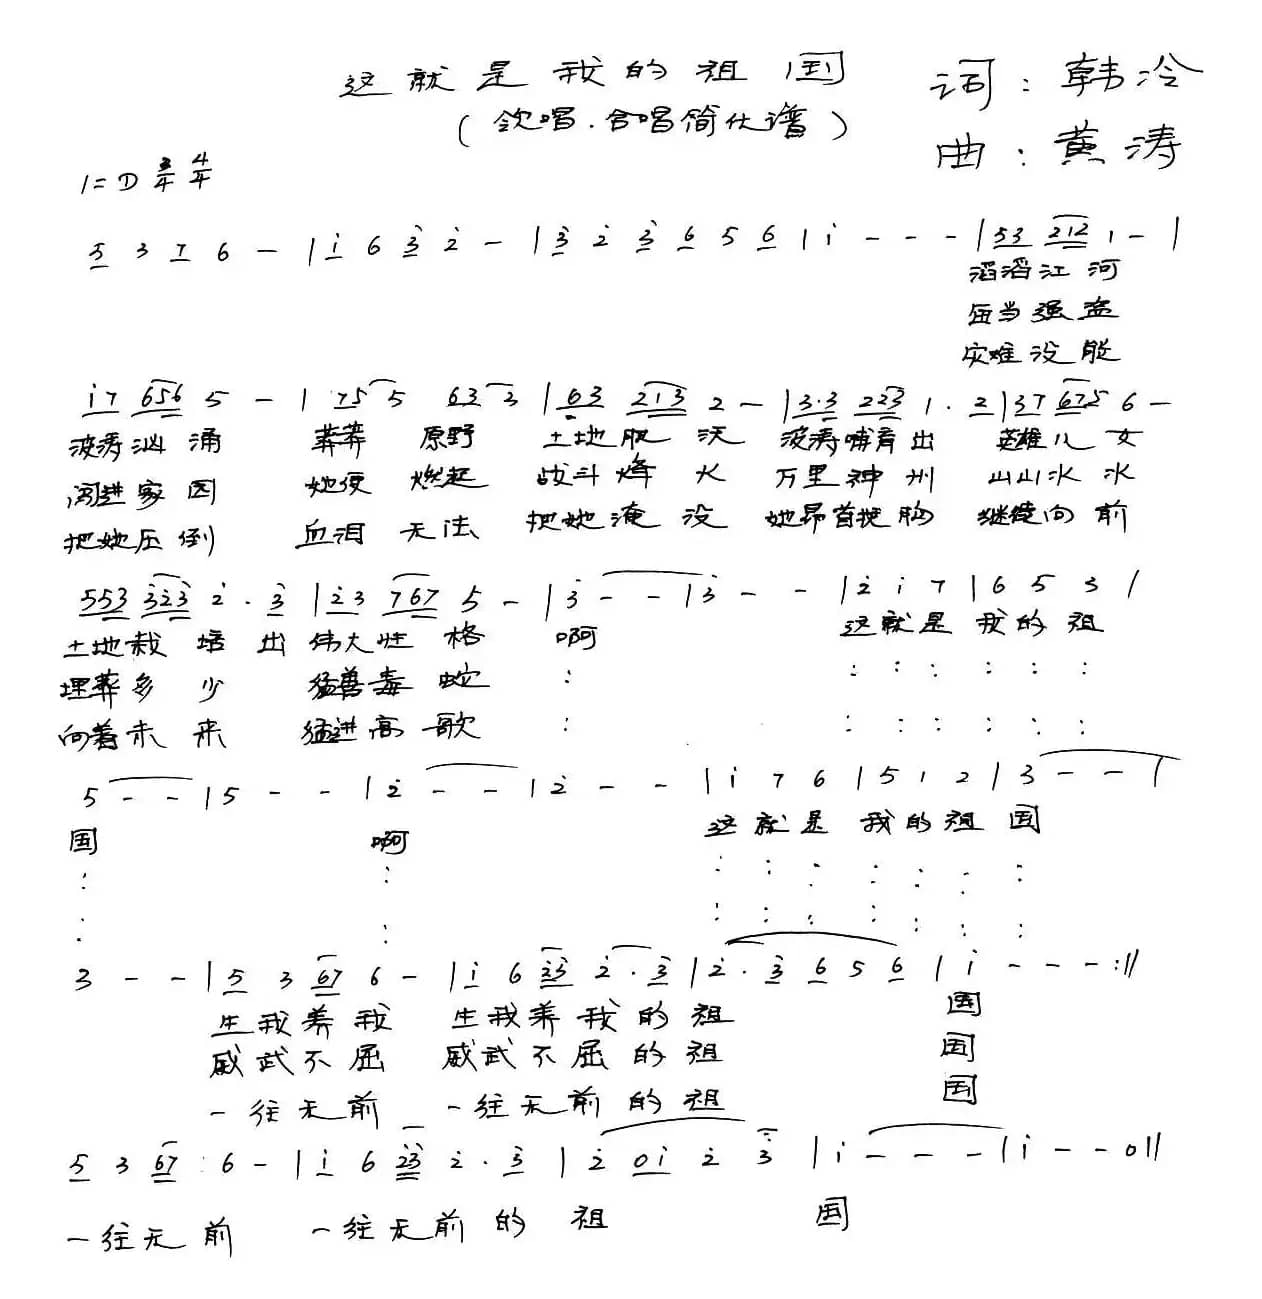 这就是我的祖国
词：韩冷
(领唱.合唱简化谱)
曲：黄涛
1=D 3/4 4/4
5 3 7 6 - | i 6 3 2 - | 3 2 3 6 5 6 | i - - - | 53 212 1 - |
滔滔江河
每当强盗
灾难没能
i7 656 5 - | 75 5 63 3 | 63 213 2 - | 3·3 223 1· 2 | 37 675 6 -
波涛汹涌 莽莽原野 土地肥沃 波涛哺育出 英雄儿女
闯进家园 她便燃起 战斗烽火 万里神州 山山水水
把她压倒 血泪无法 把她淹没 她昂首挺胸 继续向前
553 323 2· 3 | 23 767 5 - | 3 - - | 3 - - | 2 i 7 | 6 5 3 |
土地栽培出 伟大性格 啊 这就是我的祖
埋葬多少 猛兽毒蛇 : : : : : : :
向着未来 猛进高歌 : : : : : : :
5 - - | 5 - - | 2 - - | 2 - - | i 7 6 | 5 1 2 | 3 - - |
国 啊 这就是我的祖国
: : : : : : : : :
: : : : : : : : :
3 - - | 5 3 67 6 - | i 6 23 2· 3 | 2· 3 6 5 6 | i - - - :||
生我养我 生我养我的祖 国
威武不屈 威武不屈的祖 国
一往无前 一往无前的祖 国
5 3 67 6 - | i 6 23 2· 3 | 2 0i 2 3 | i - - - | i - - 0 ||
一往无前 一往无前的祖 国